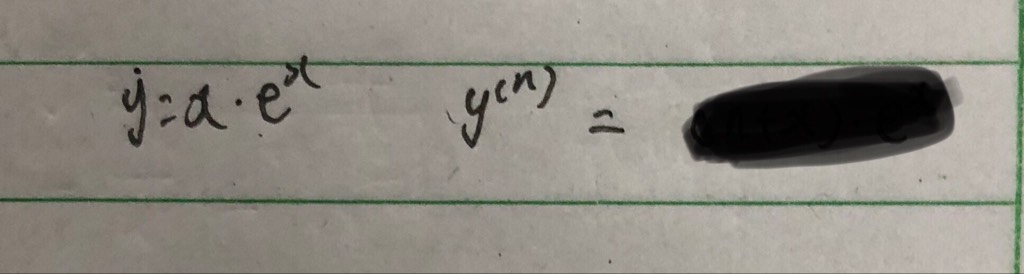 y=x·eˣ y⁽ⁿ⁾ =